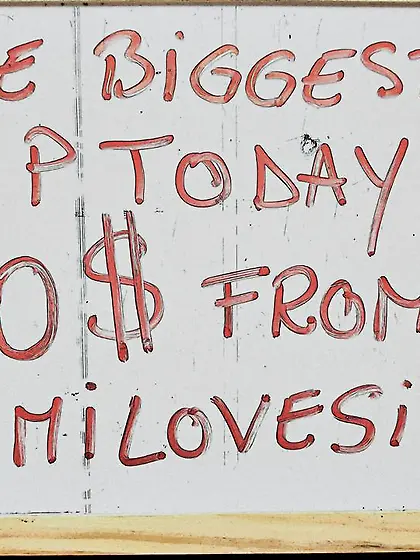 E BiGGEST
P TODAY
0$ FROM
MiLOVESi